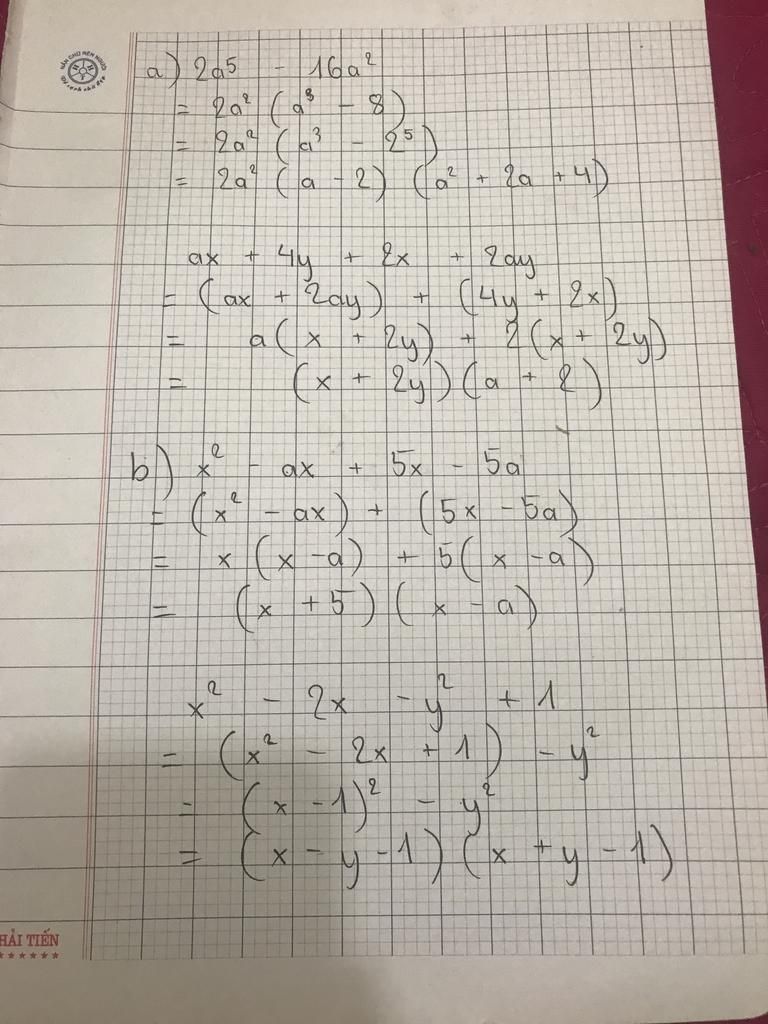 a) 2a⁵ - 16a²
= 2a² (a³ - 8)
= 2a² (a³ - 2⁵)
= 2a² (a - 2) (a² + 2a + 4)
ax + 4y + 2x + 2ay
= (ax + 2ay) + (4y + 2x)
= a(x + 2y) + 2(x + 2y)
= (x + 2y)(a + 2)
b) x² - ax + 5x - 5a
= (x² - ax) + (5x - 5a)
= x (x - a) + 5(x - a)
= (x + 5)(x - a)
x² - 2x - y² + 1
= (x² - 2x + 1) - y²
= (x - 1)² - y²
= (x - y - 1)(x + y - 1)
HẢI TIẾN